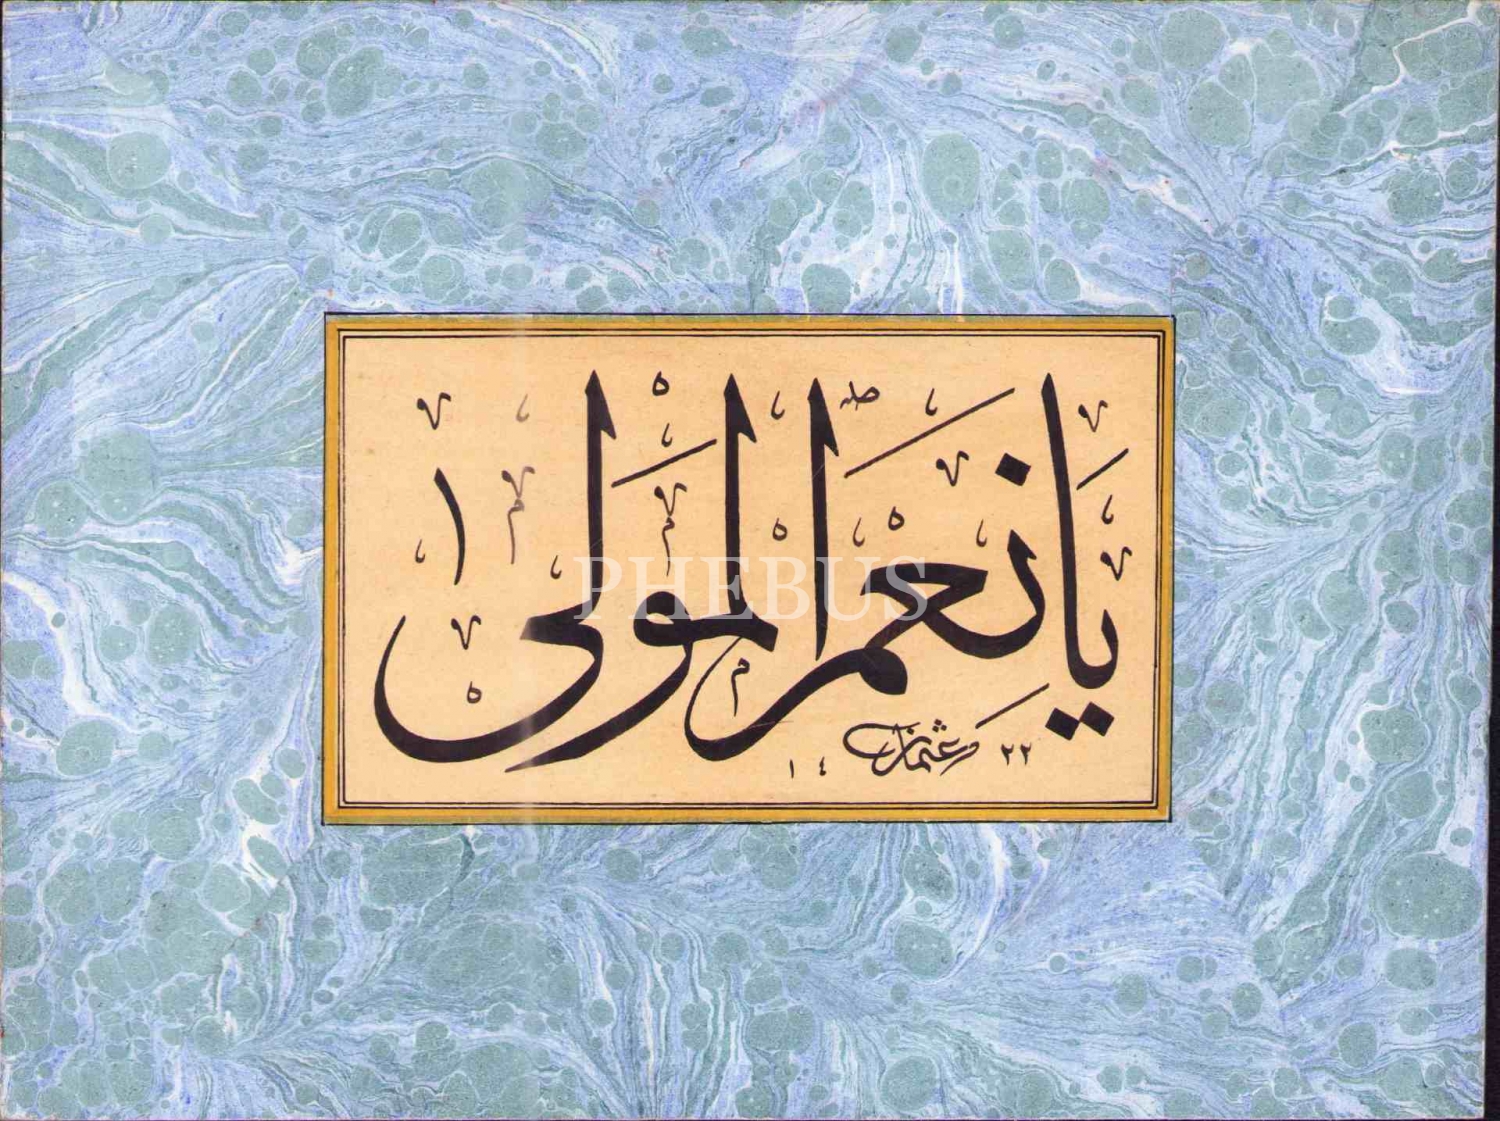 يَا نِعْمَ الْمَوْلَى
٢٢ عثمان ١٤
PHEBUS